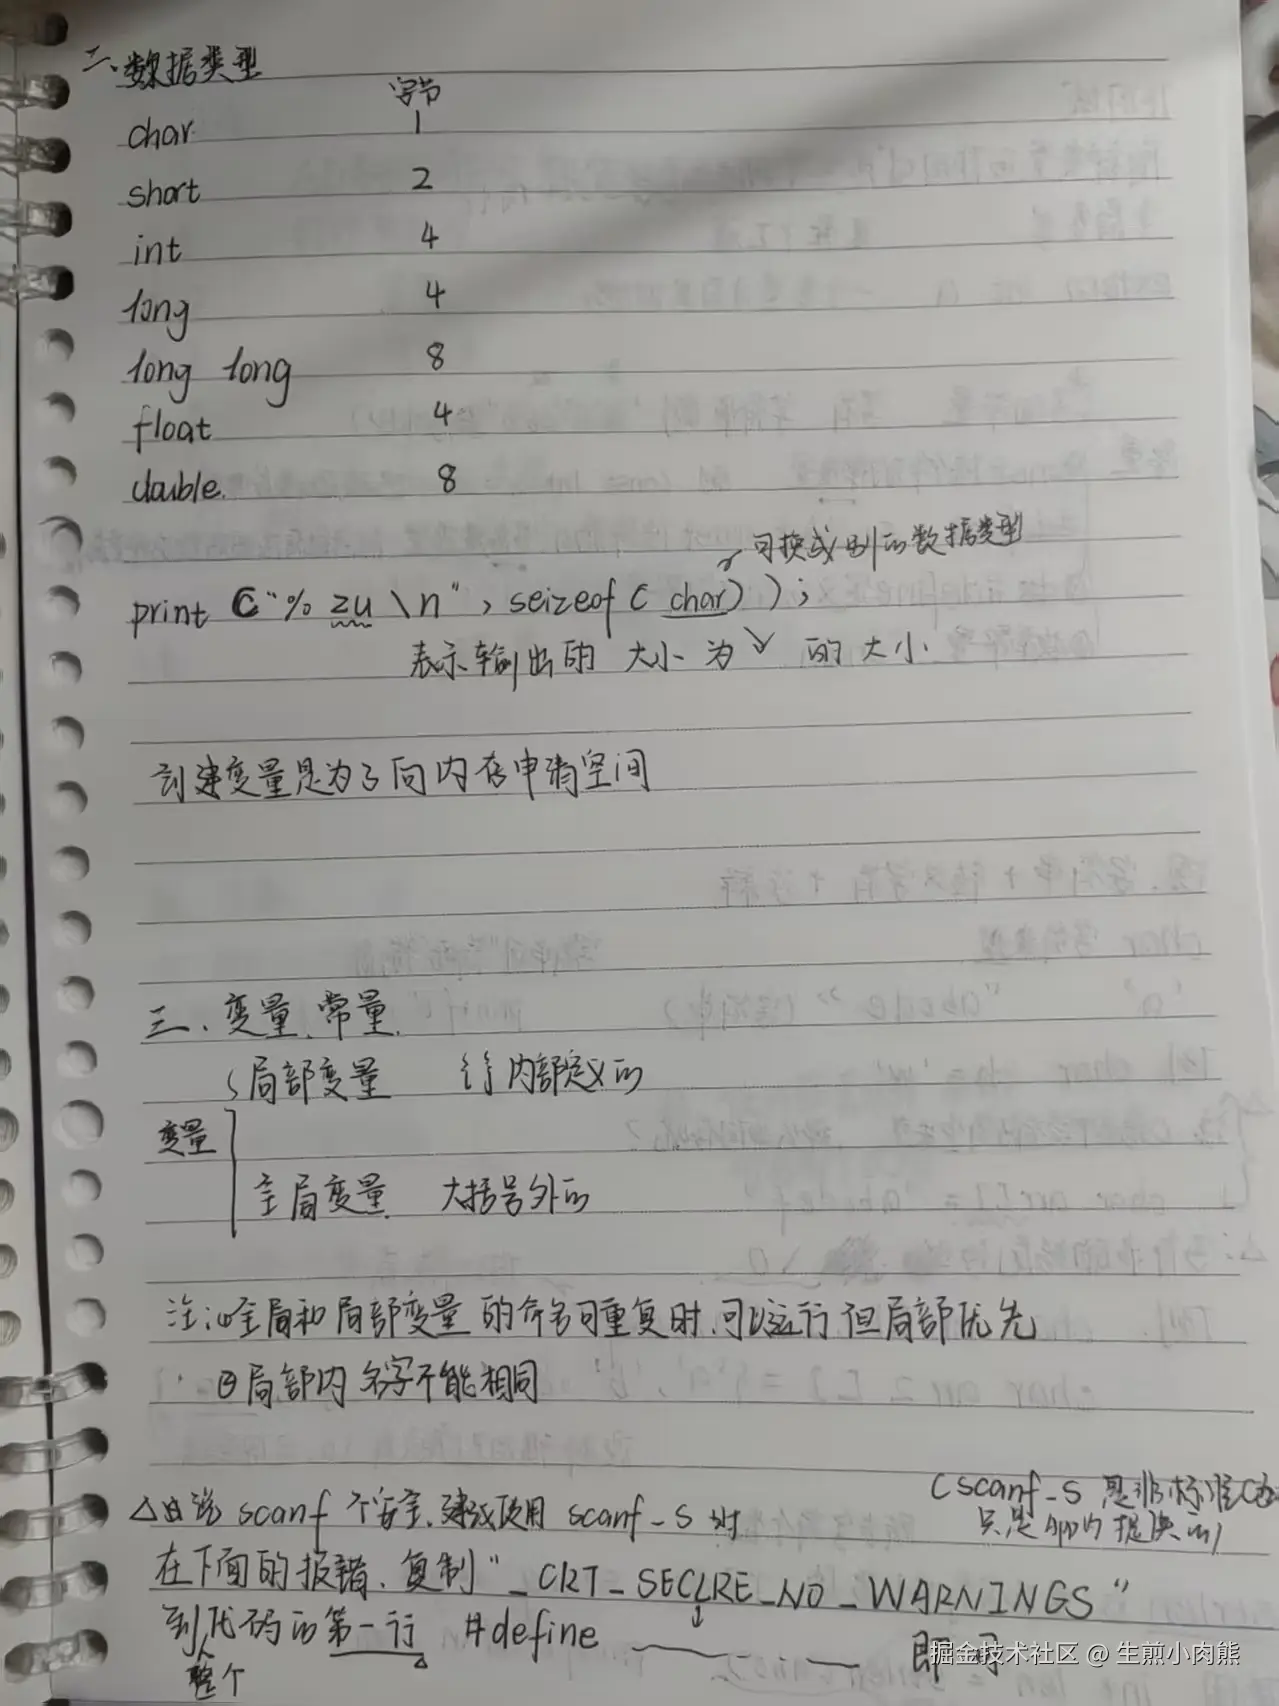 二、数据类型
字节
char 1
short 2
int 4
long 4
long long 8
float 4
double 8
可换成别的数据类型
print ("% zu \n", seizeof ( char ) ) ;
表示输出的 大小 为 的大小
创建变量是为了向内存申请空间
三、变量、常量
局部变量 {}内部定义的
变量
全局变量 大括号外的
注:①全局和局部变量的命名可重复时,可以运行但局部优先
②局部内名字不能相同
(scanf_s 是非标准
只是app内提供的)
△当说 scanf 不安全,建议使用 scanf_s 时
在下面的报错,复制"_CRT_SECLRE_NO_WARNINGS"
到代码的第一行 #define 即可
整个
掘金技术社区 @ 生煎小肉熊